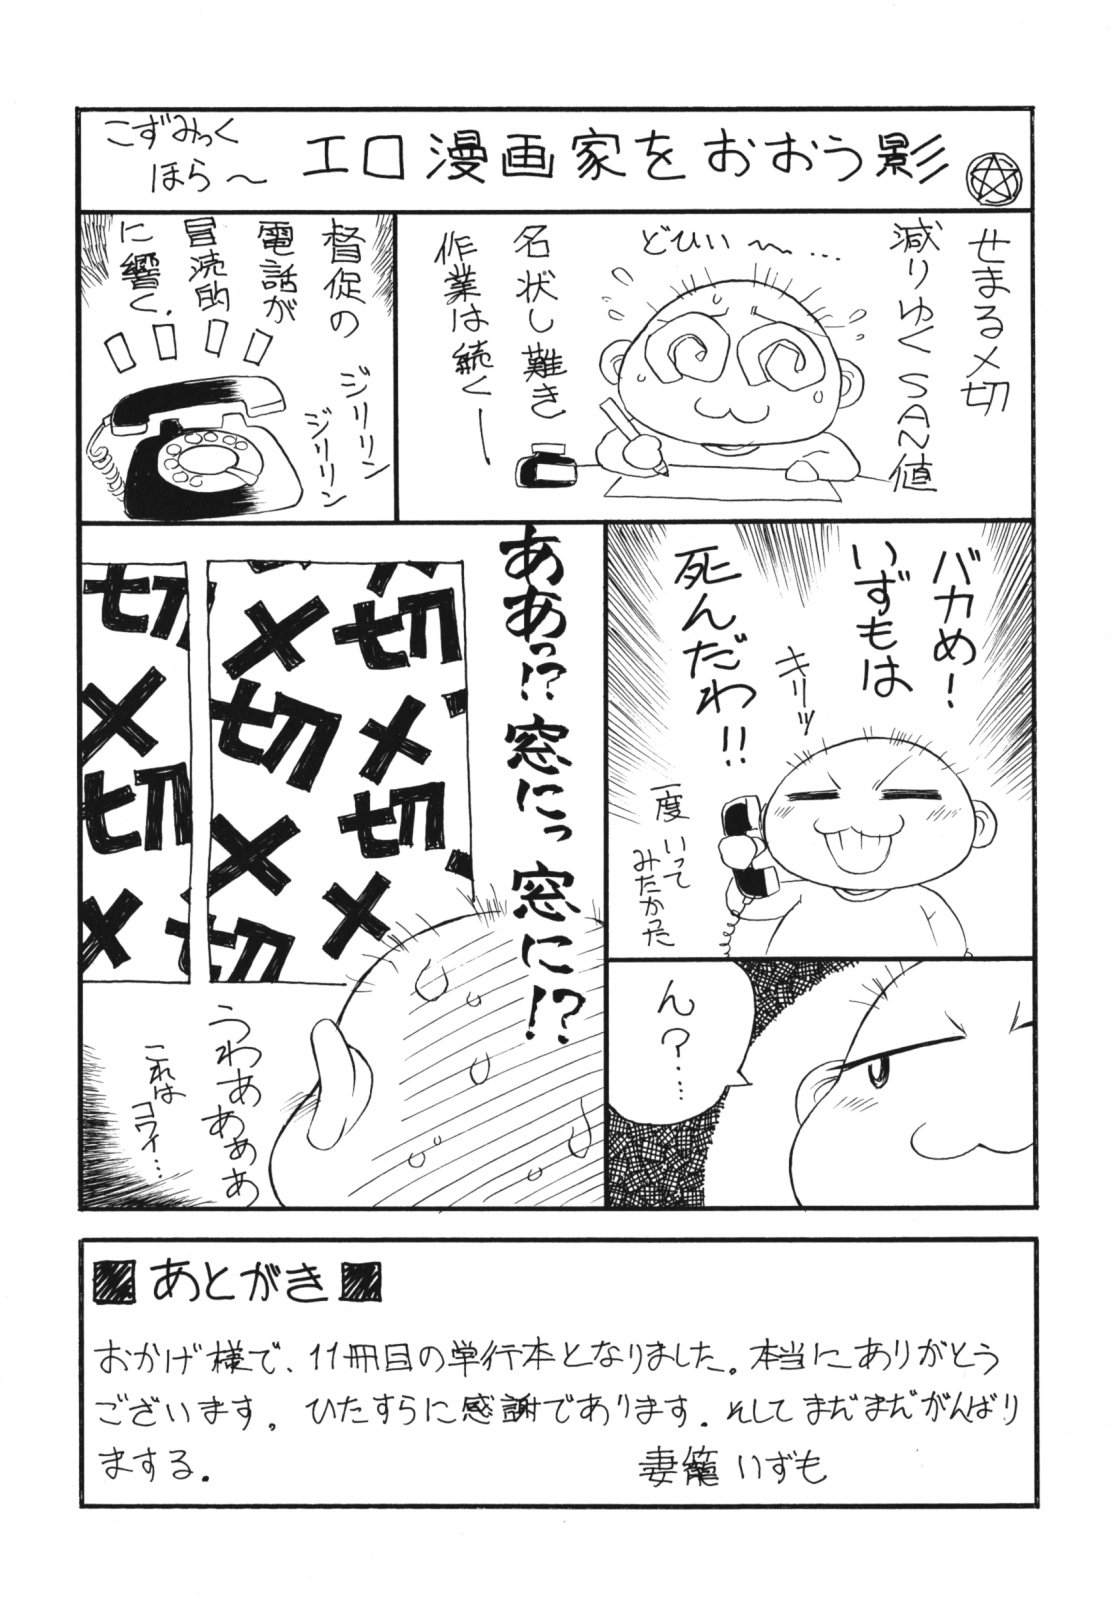 こずみっく
ほら～
エロ漫画家をおおう影
せまる〆切
減りゆくSAN値
どひぃ～…
名状し難き
作業は続く―
督促の
電話が
冒涜的
に響く.
ジリリリン
ジリリリン
バカめ!
いずもは
死んだわ!!
キリッ
一度いって
みたかった
ん?…
ああっ!?窓にっ窓に!?
切
〆
切
〆
〆
切
〆
切
〆
切
〆
切
〆
切
うわああぁぁ
これは
コワイ…
■あとがき■
おかげ様で、11冊目の単行本となりました。本当にありがとう
ございます。ひたすらに感謝であります.そしてまだまだがんばり
まする.
妻籠いずも